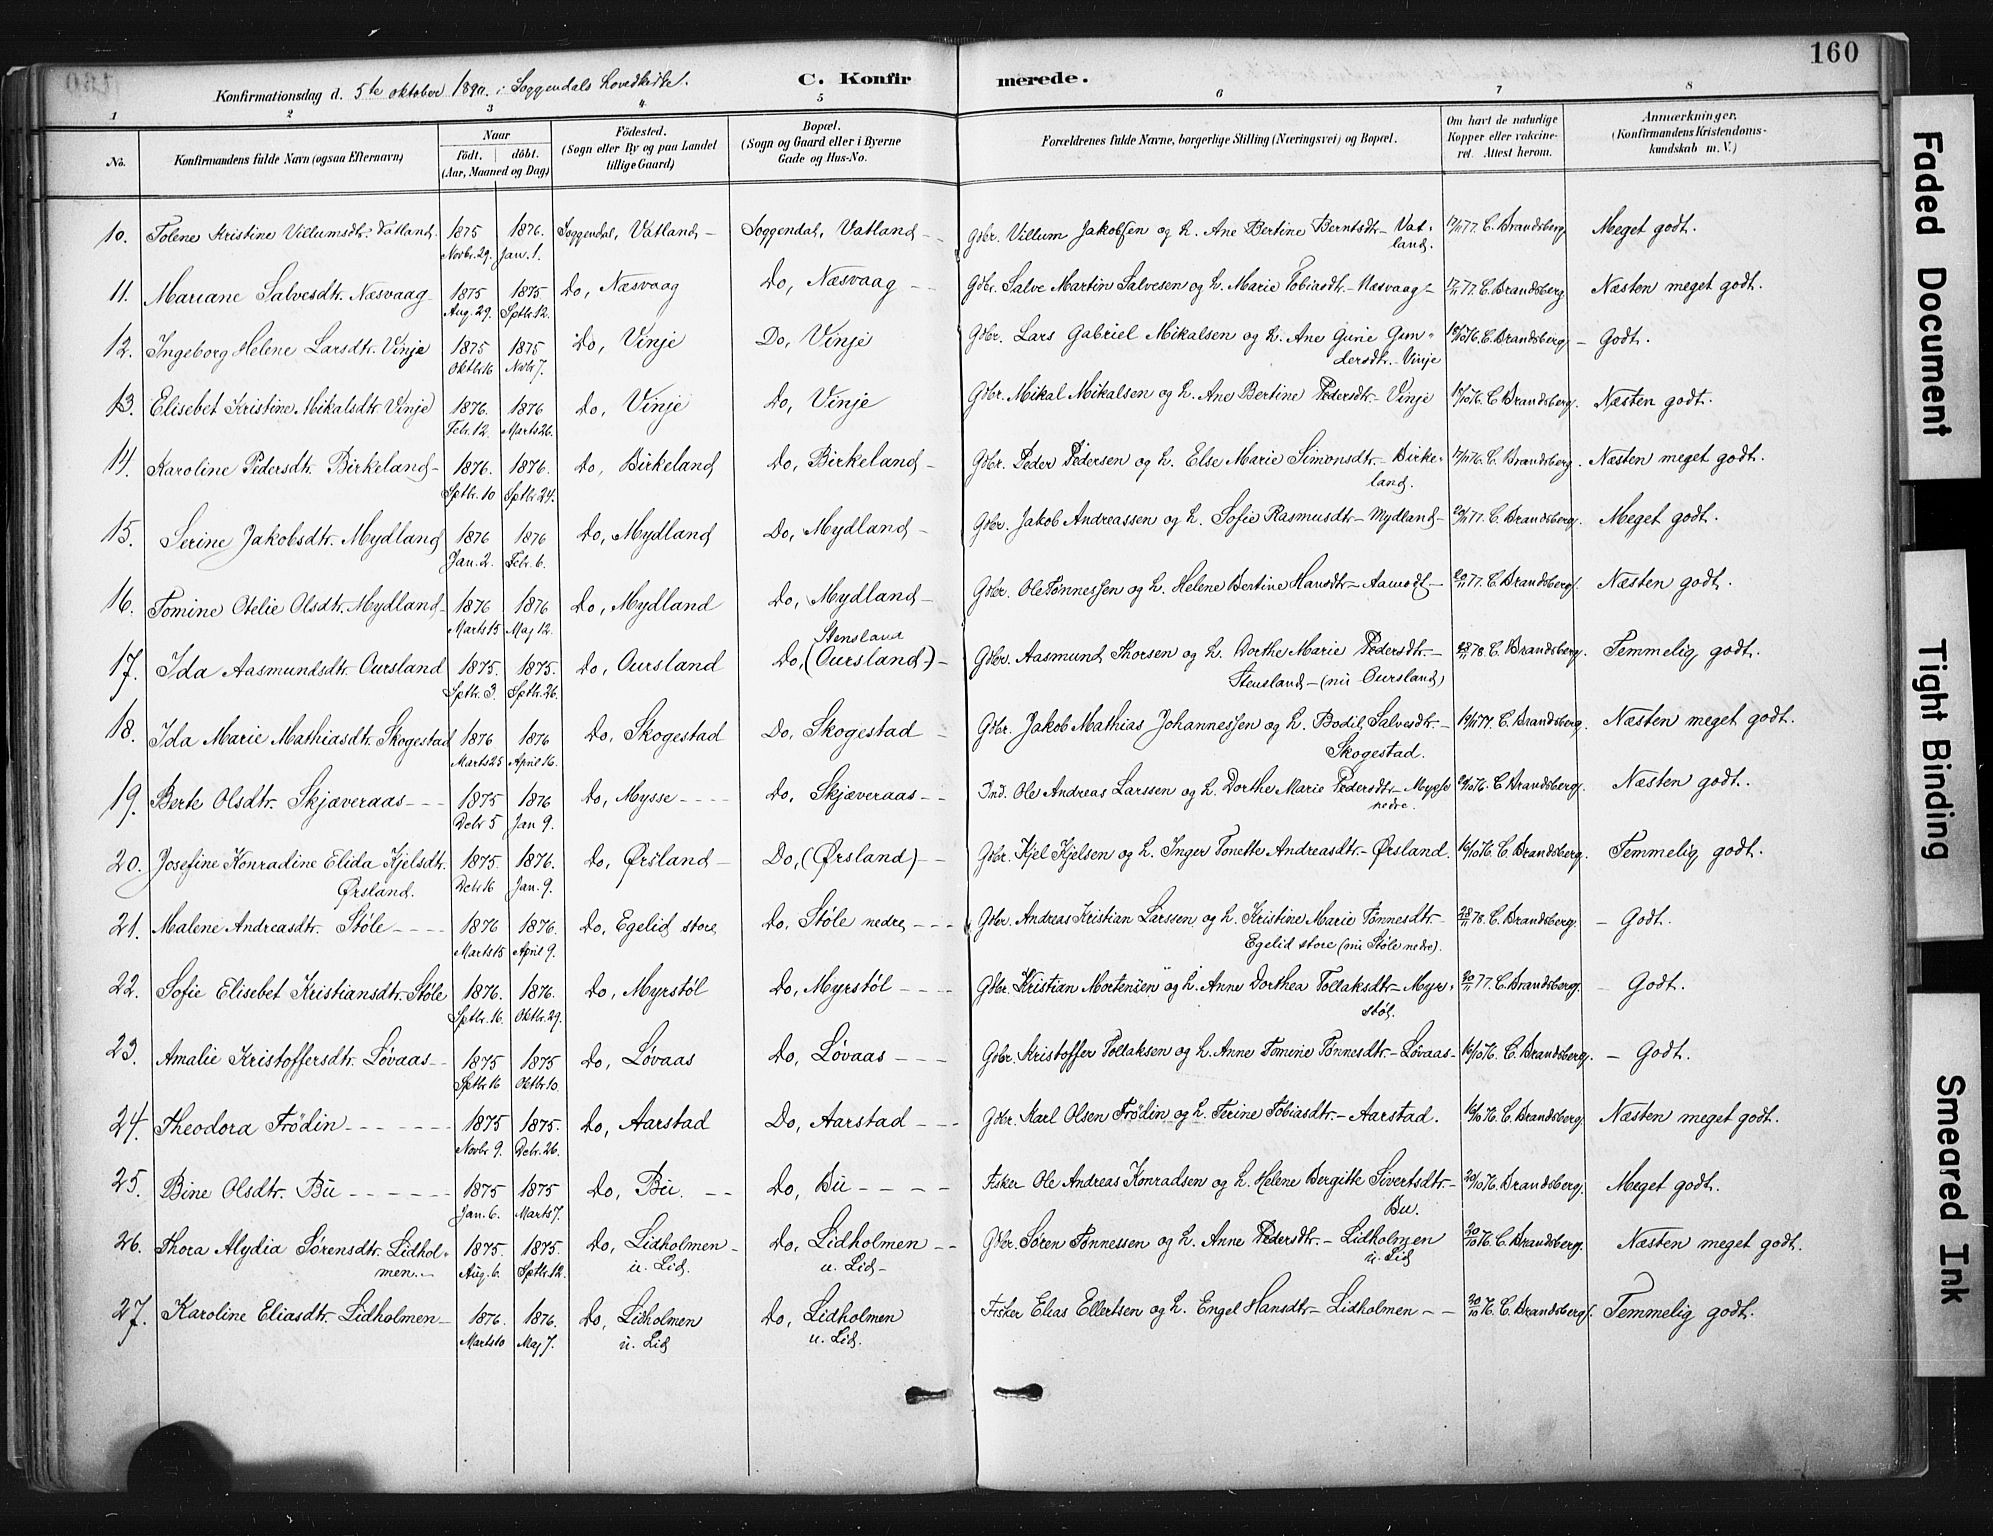 160
Konfirmationsdag d. 5te oktober 1890. i Soggendals hovedkirke. C. Konfirmerede.
1 2 3 4 5 6 7 8
No. Konfirmandens fulde Navn (ogsaa Efternavn) Naar født. døbt. (Aar, Maaned og Dag) Fødested. (Sogn eller By og paa Landet tillige Gaard) Bopæl. (Sogn og Gaard eller i Byerne Gade og Hus-No. Forældrenes fulde Navne, borgerlige Stilling (Næringsvei) og Bopæl. Om havt de naturlige Kopper eller vakcineret. Attest herom. Anmærkninger. (Konfirmandens Kristendomskundskab m. V.)
10. Tolene Kristine Villumsdtr. Vatland. 1875 Novbr. 29. 1876. Jan. 1. Soggendal, Vatland – Soggendal, Vatland – Gdbr. Villum Jakobsen og h. Ane Bertine Berntsdtr. – Vatland. 17/11 77. C. Brandsberg Meget godt.
11. Mariane Salvesdtr. Næsvaag 1875 Aug. 29. 1875 Sptbr. 12. Do, Næsvaag Do, Næsvaag – Gdbr. Salve Martin Salvesen og h. Marie Tobiasdtr. – Næsvaag – 17/11 77. C. Brandsberg Næsten meget godt.
12. Ingeborg Helene Larsdtr. Vinje 1875 Oktbr. 16 1875 Novbr. 7. Do, Vinje Do, Vinje Gdbr. Lars Gabriel Mikalsen og h. Ane Gune Gundersdtr. – Vinje C. Brandsberg – Godt.
13. Elisebet Kristine Mikalsdtr. Vinje 1876. Febr. 12. 1876 Marts 26. Do, Vinje Do, Vinje Gdbr. Mikal Mikalsen og h. Ane Bertine Pedersdtr. – Vinje C. Brandsberg. Næsten godt.
14. Karoline Pedersdtr. Birkeland – 1876. Sptbr. 10 1876. Sptbr. 24. Do, Birkeland Do, Birkeland – Gdbr. Peder Pedersen og h. Else Marie Simonsdtr. – Birkeland. C. Brandsberg. Næsten meget godt.
15. Serine Jakobsdtr. Mydland 1876 Jan. 2. 1876 Febr. 6. Do, Mydland Do, Mydland – Gdbr. Jakob Andreassen og h. Sofie Rasmusdtr. – Mydland – 20/11 77. C. Brandsberg. Meget godt.
16. Tomine Otelie Olsdtr. Mydland – 1876 Marts 15 1876 Maj 12. Do, Mydland Do, Mydland – Gdbr. Ole Tønnessen og h. Helene Bertine Hansdtr. – Aamodt – 20/11 77. C. Brandsberg. Næsten godt.
17. Ida Aasmundsdtr. Oursland 1875. Sptbr. 3. 1875. Sptbr. 26. Do, Oursland Do, Stensland (Oursland) – Gdbr. Aasmund Thorsen og h. Dorthe Marie Pedersdtr. – Stensland – (nu Oursland) 28/11 78. C. Brandsberg. Temmelig godt.
18. Ida Marie Mathiasdtr. Skogestad 1876 Marts 25 1876 April 16. Do, Skogestad Do, Skogestad – Gdbr. Jakob Mathias Johannessen og h. Bodil Salvesdtr. – Skogestad. 19/11 77. C. Brandsberg. Næsten meget godt.
19. Berte Olsdtr. Skjæveraas – – – 1875 Debr 5 1876 Jan 9. Do, Mysse – – – Do, Skjæveraas – – Ind. Ole Andreas Larssen og h. Dorthe Marie Pedersdtr. – Mysse nedre. C. Brandsberg. Næsten godt.
20. Josefine Konradine Elida Kjelsdtr. Ørsland. 1875. Debr 16 1876. Jan. 9. Do, Ørsland – Do, (Ørsland) – – Gdbr. Kjel Kjelsen og h. Inger Tonette Andreasdtr. – Ørsland. 16/10 76. C. Brandsberg. Temmelig godt.
21. Malene Andreasdtr. Støle – – – – 1876 Marts 15 1876. April 9. Do, Egelid store Do, Støle nedre – – – Gdbr. Andreas Kristian Larssen og h. Kristine Marie Tønnesdtr. – Egelid store (nu Støle nedre). 28/11 78. C. Brandsberg. – Godt.
22. Sofie Elisebet Kristiansdtr. Støle 1876. Sptbr. 16. 1876. Oktbr. 29. Do, Myrstøl Do, Myrstøl – – – Gdbr. Kristian Mortensen og h. Anne Dorthea Tollaksdtr. – Myrstøl. 20/11 77. C. Brandsberg. – Godt.
23. Amalie Kristoffersdtr. Løvaas – – 1875 Sptbr 16 1875 Oktbr. 10. Do, Løvaas Do, Løvaas – – – Gdbr. Kristoffer Tollaksen og h. Anne Tomine Tønnesdtr. – Løvaas – 16/10 76. C. Brandsberg. – Godt.
24. Theodora Frödin – – – – – – 1875 Novbr 9. 1875. Debr. 26. Do, Aarstad Do, Aarstad – – – Gdbr. Karl Olsen Frödin og h. Terine Tobiasdtr. – Aarstad. 16/10 76. C. Brandsberg. Næsten meget godt.
25. Bine Olsdtr. Bu – – – – – – 1875 Jan. 6. 1875 Marts 7. Do, Bu. – – Do, Bu – – – – Fisker Ole Andreas Konradsen og h. Helene Bergitte Sivertsdtr. – Bu. 20/10 76. Brandsberg. Meget godt.
26. Thora Alydia Sørensdtr. Lidholmen. – 1875. Aug. 6. 1875. Sptbr. 12. Do, Lidholmen – u. Lid. Do, Lidholmen – – u. Lid – Gdbr. Søren Tønnessen og h. Anne Pedersdtr. – Lidholmen u. Lid 20/10 76. C. Brandsberg. Næsten meget godt.
27. Karoline Eliasdtr. Lidholmen – 1876. Marts 10 1876. Maj 7. Do, Lidholmen u. Lid Do, Lidholmen u. Lid. Fisker Elias Ellertsen og h. Engel Hansdtr. – Lidholmen – – 20/10 76. C. Brandsberg. Temmelig godt.
Faded Document
Tight Binding
Smeared Ink